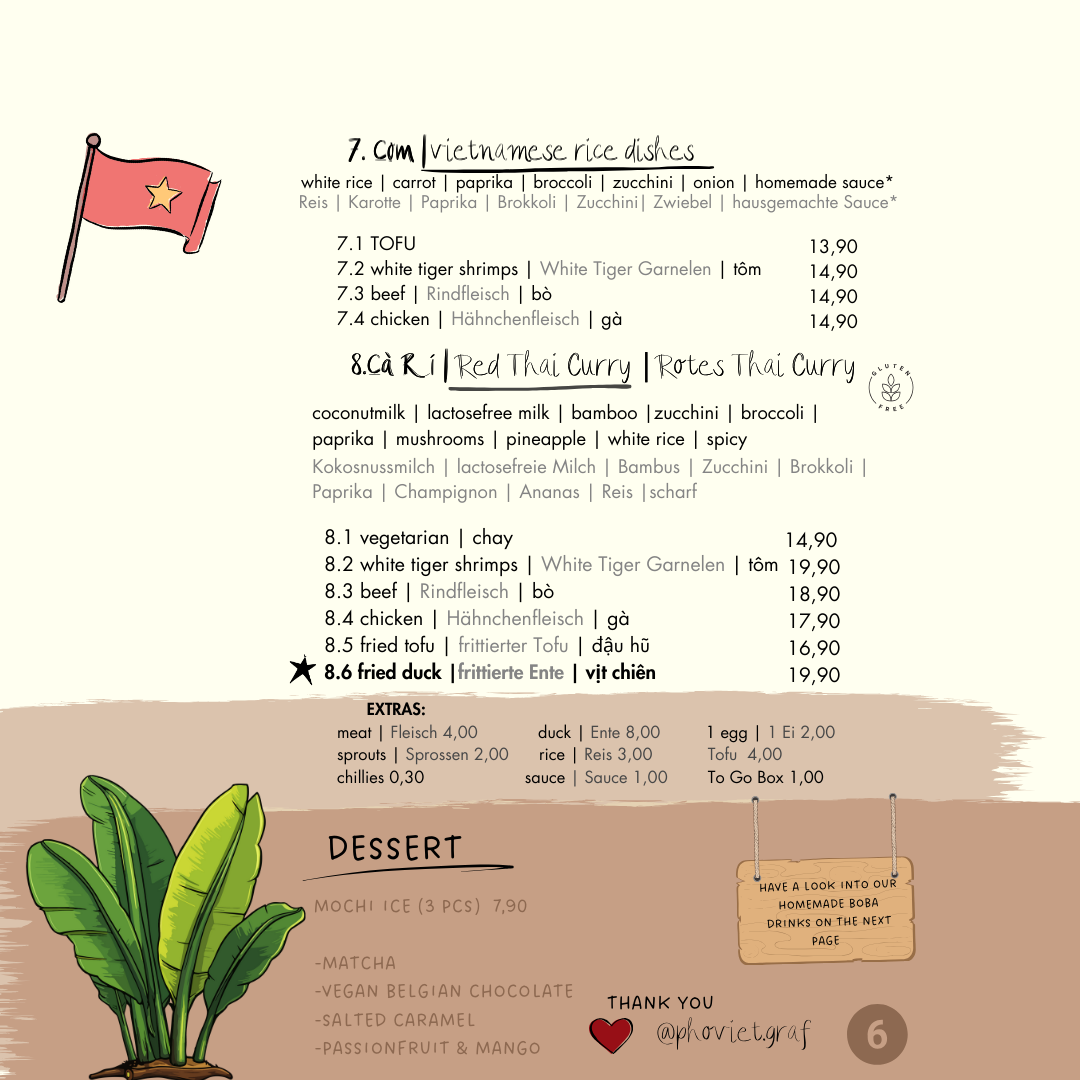 7. Cơm | vietnamese rice dishes
white rice | carrot | paprika | broccoli | zucchini | onion | homemade sauce*
Reis | Karotte | Paprika | Brokkoli | Zucchini| Zwiebel | hausgemachte Sauce*
7.1 TOFU 13,90
7.2 white tiger shrimps | White Tiger Garnelen | tôm 14,90
7.3 beef | Rindfleisch | bò 14,90
7.4 chicken | Hähnchenfleisch | gà 14,90
8.Cà Rí | Red Thai Curry | Rotes Thai Curry
GLUTEN FREE
coconutmilk | lactosefree milk | bamboo |zucchini | broccoli |
paprika | mushrooms | pineapple | white rice | spicy
Kokosnussmilch | lactosefreie Milch | Bambus | Zucchini | Brokkoli |
Paprika | Champignon | Ananas | Reis |scharf
8.1 vegetarian | chay 14,90
8.2 white tiger shrimps | White Tiger Garnelen | tôm 19,90
8.3 beef | Rindfleisch | bò 18,90
8.4 chicken | Hähnchenfleisch | gà 17,90
8.5 fried tofu | frittierter Tofu | đậu hũ 16,90
8.6 fried duck |frittierte Ente | vịt chiên 19,90
EXTRAS:
meat | Fleisch 4,00 duck | Ente 8,00 1 egg | 1 Ei 2,00
sprouts | Sprossen 2,00 rice | Reis 3,00 Tofu 4,00
chillies 0,30 sauce | Sauce 1,00 To Go Box 1,00
DESSERT
MOCHI ICE (3 PCS) 7,90
-MATCHA
-VEGAN BELGIAN CHOCOLATE
-SALTED CARAMEL
-PASSIONFRUIT & MANGO
HAVE A LOOK INTO OUR
HOMEMADE BOBA
DRINKS ON THE NEXT
PAGE
THANK YOU
@phoviet.graf
6